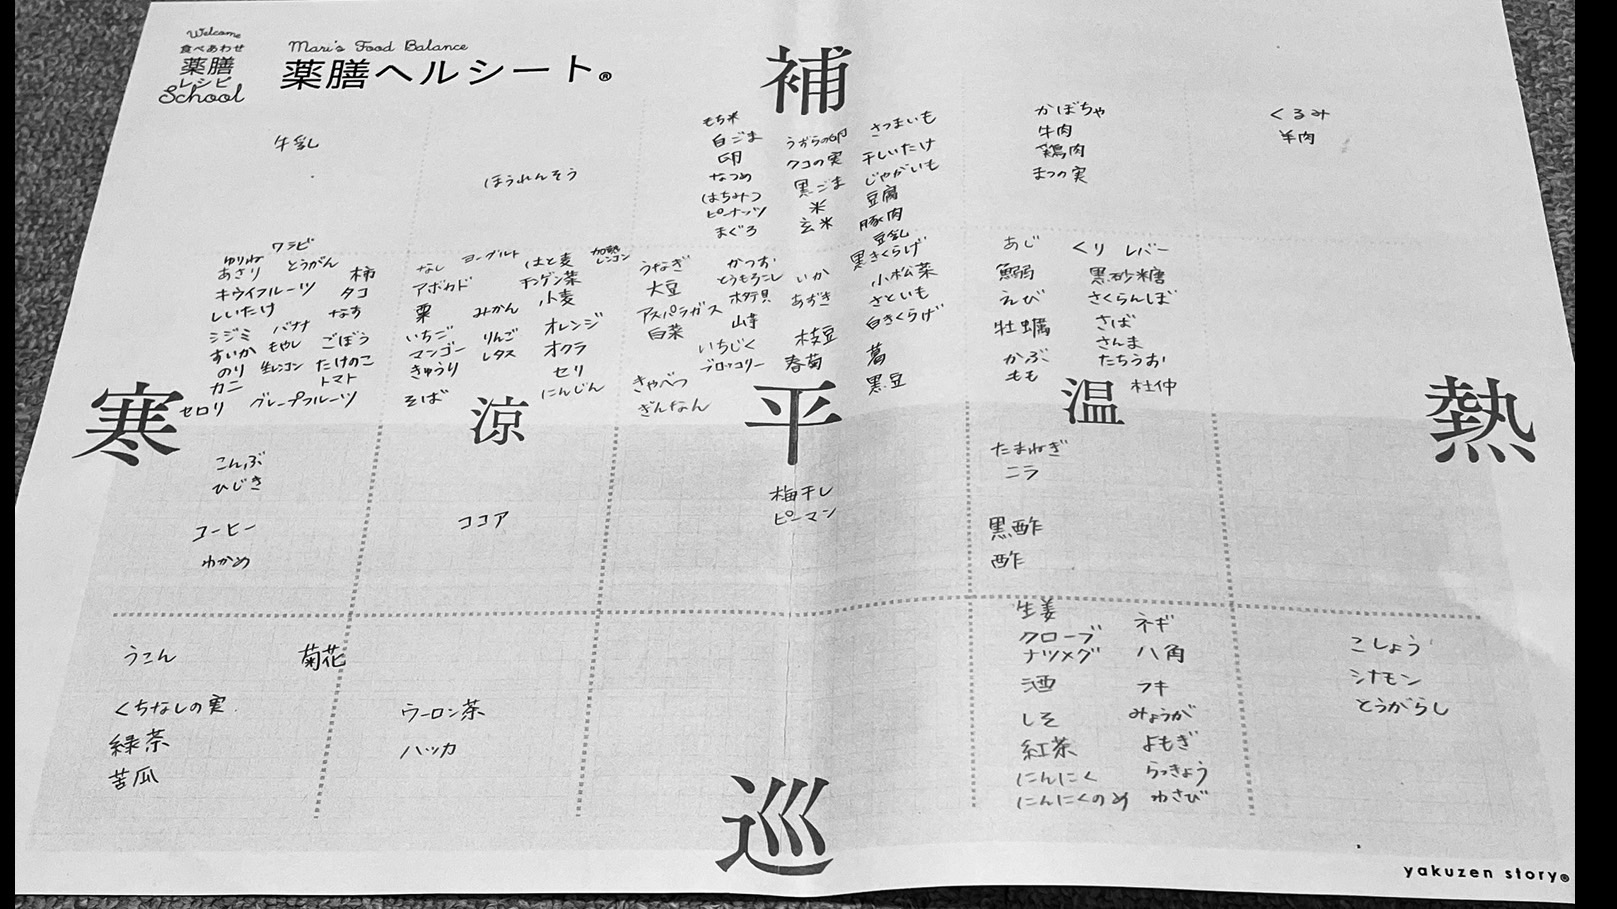 Welcome
食べあわせ
薬膳
レシピ
School
Mari's Food Balance
薬膳ヘルシート®
補
牛乳
ほうれんそう
もち米
白ごま
卵
なつめ
はちみつ
ピーナッツ
まぐろ
うずらの卵
クコの実
黒ごま
米
玄米
さつまいも
干しいたけ
じゃがいも
豆腐
豚肉
豆乳
かぼちゃ
牛肉
鶏肉
まつの実
くるみ
羊肉
ワラビ
ゆりね
あさり
とうがん
柿
キウイフルーツ
タコ
しいたけ
なす
シジミ
バナナ
ごぼう
すいか
もやし
のり
生レンコン
たけのこ
カニ
トマト
セロリ
グレープフルーツ
なし
ヨーグルト
はと麦
加熱レンコン
アボカド
チンゲン菜
粟
みかん
小麦
いちご
りんご
オレンジ
マンゴー
レタス
オクラ
きゅうり
セリ
そば
にんじん
うなぎ
かつお
大豆
とうもろこし
いか
アスパラガス
ホタテ貝
あずき
白菜
山芋
枝豆
いちじく
ブロッコリー
春菊
きゃべつ
ぎんなん
黒きくらげ
小松菜
さといも
白きくらげ
葛
黒豆
あじ
くり
レバー
鰯
黒砂糖
えび
さくらんぼ
牡蠣
さば
さんま
かぶ
たちうお
もも
杜仲
寒
涼
平
温
熱
こんぶ
ひじき
コーヒー
わかめ
ココア
梅干し
ピーマン
たまねぎ
ニラ
黒酢
酢
うこん
菊花
くちなしの実
緑茶
苦瓜
ウーロン茶
ハッカ
生姜
クローブ
ナツメグ
酒
しそ
紅茶
にんにく
にんにくのめ
ネギ
八角
フキ
みょうが
よもぎ
らっきょう
わさび
こしょう
シナモン
とうがらし
巡
yakuzen story®